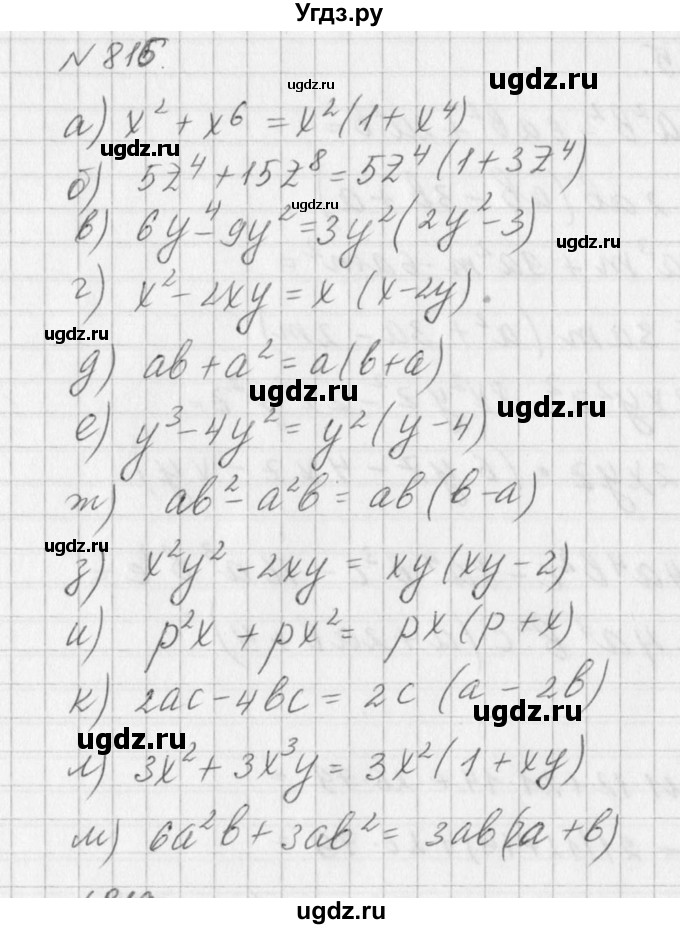 Угдз.ру
№ 816.
ugdz.ru
ugdz.ru
а) x² + x⁶ = x²(1 + x⁴)
ugdz.ru
б) 5z⁴ + 15z⁸ = 5z⁴(1 + 3z⁴)
ugdz.ru
в) 6y⁴ - 9y² = 3y²(2y² - 3)
ugdz.ru
г) x² - 2xy = x (x - 2y).
ugdz.ru
д) ab + a² = a(b + a)
ugdz.ru
ugdz.ru
е) y³ - 4y² = y²(y - 4)
ж) ab² - a²b = ab(b - a)
ugdz.ru
з) x²y² - 2xy = xy(xy - 2)
и) p²x + px² = px(p + x)
к) 2ac - 4bc = 2c (a - 2b)
ugdz.ru
ugdz.ru
л) 3x² + 3x³y = 3x²(1 + xy)
м) 6a²b + 3ab² = 3ab(2a + b)
ugdz.ru